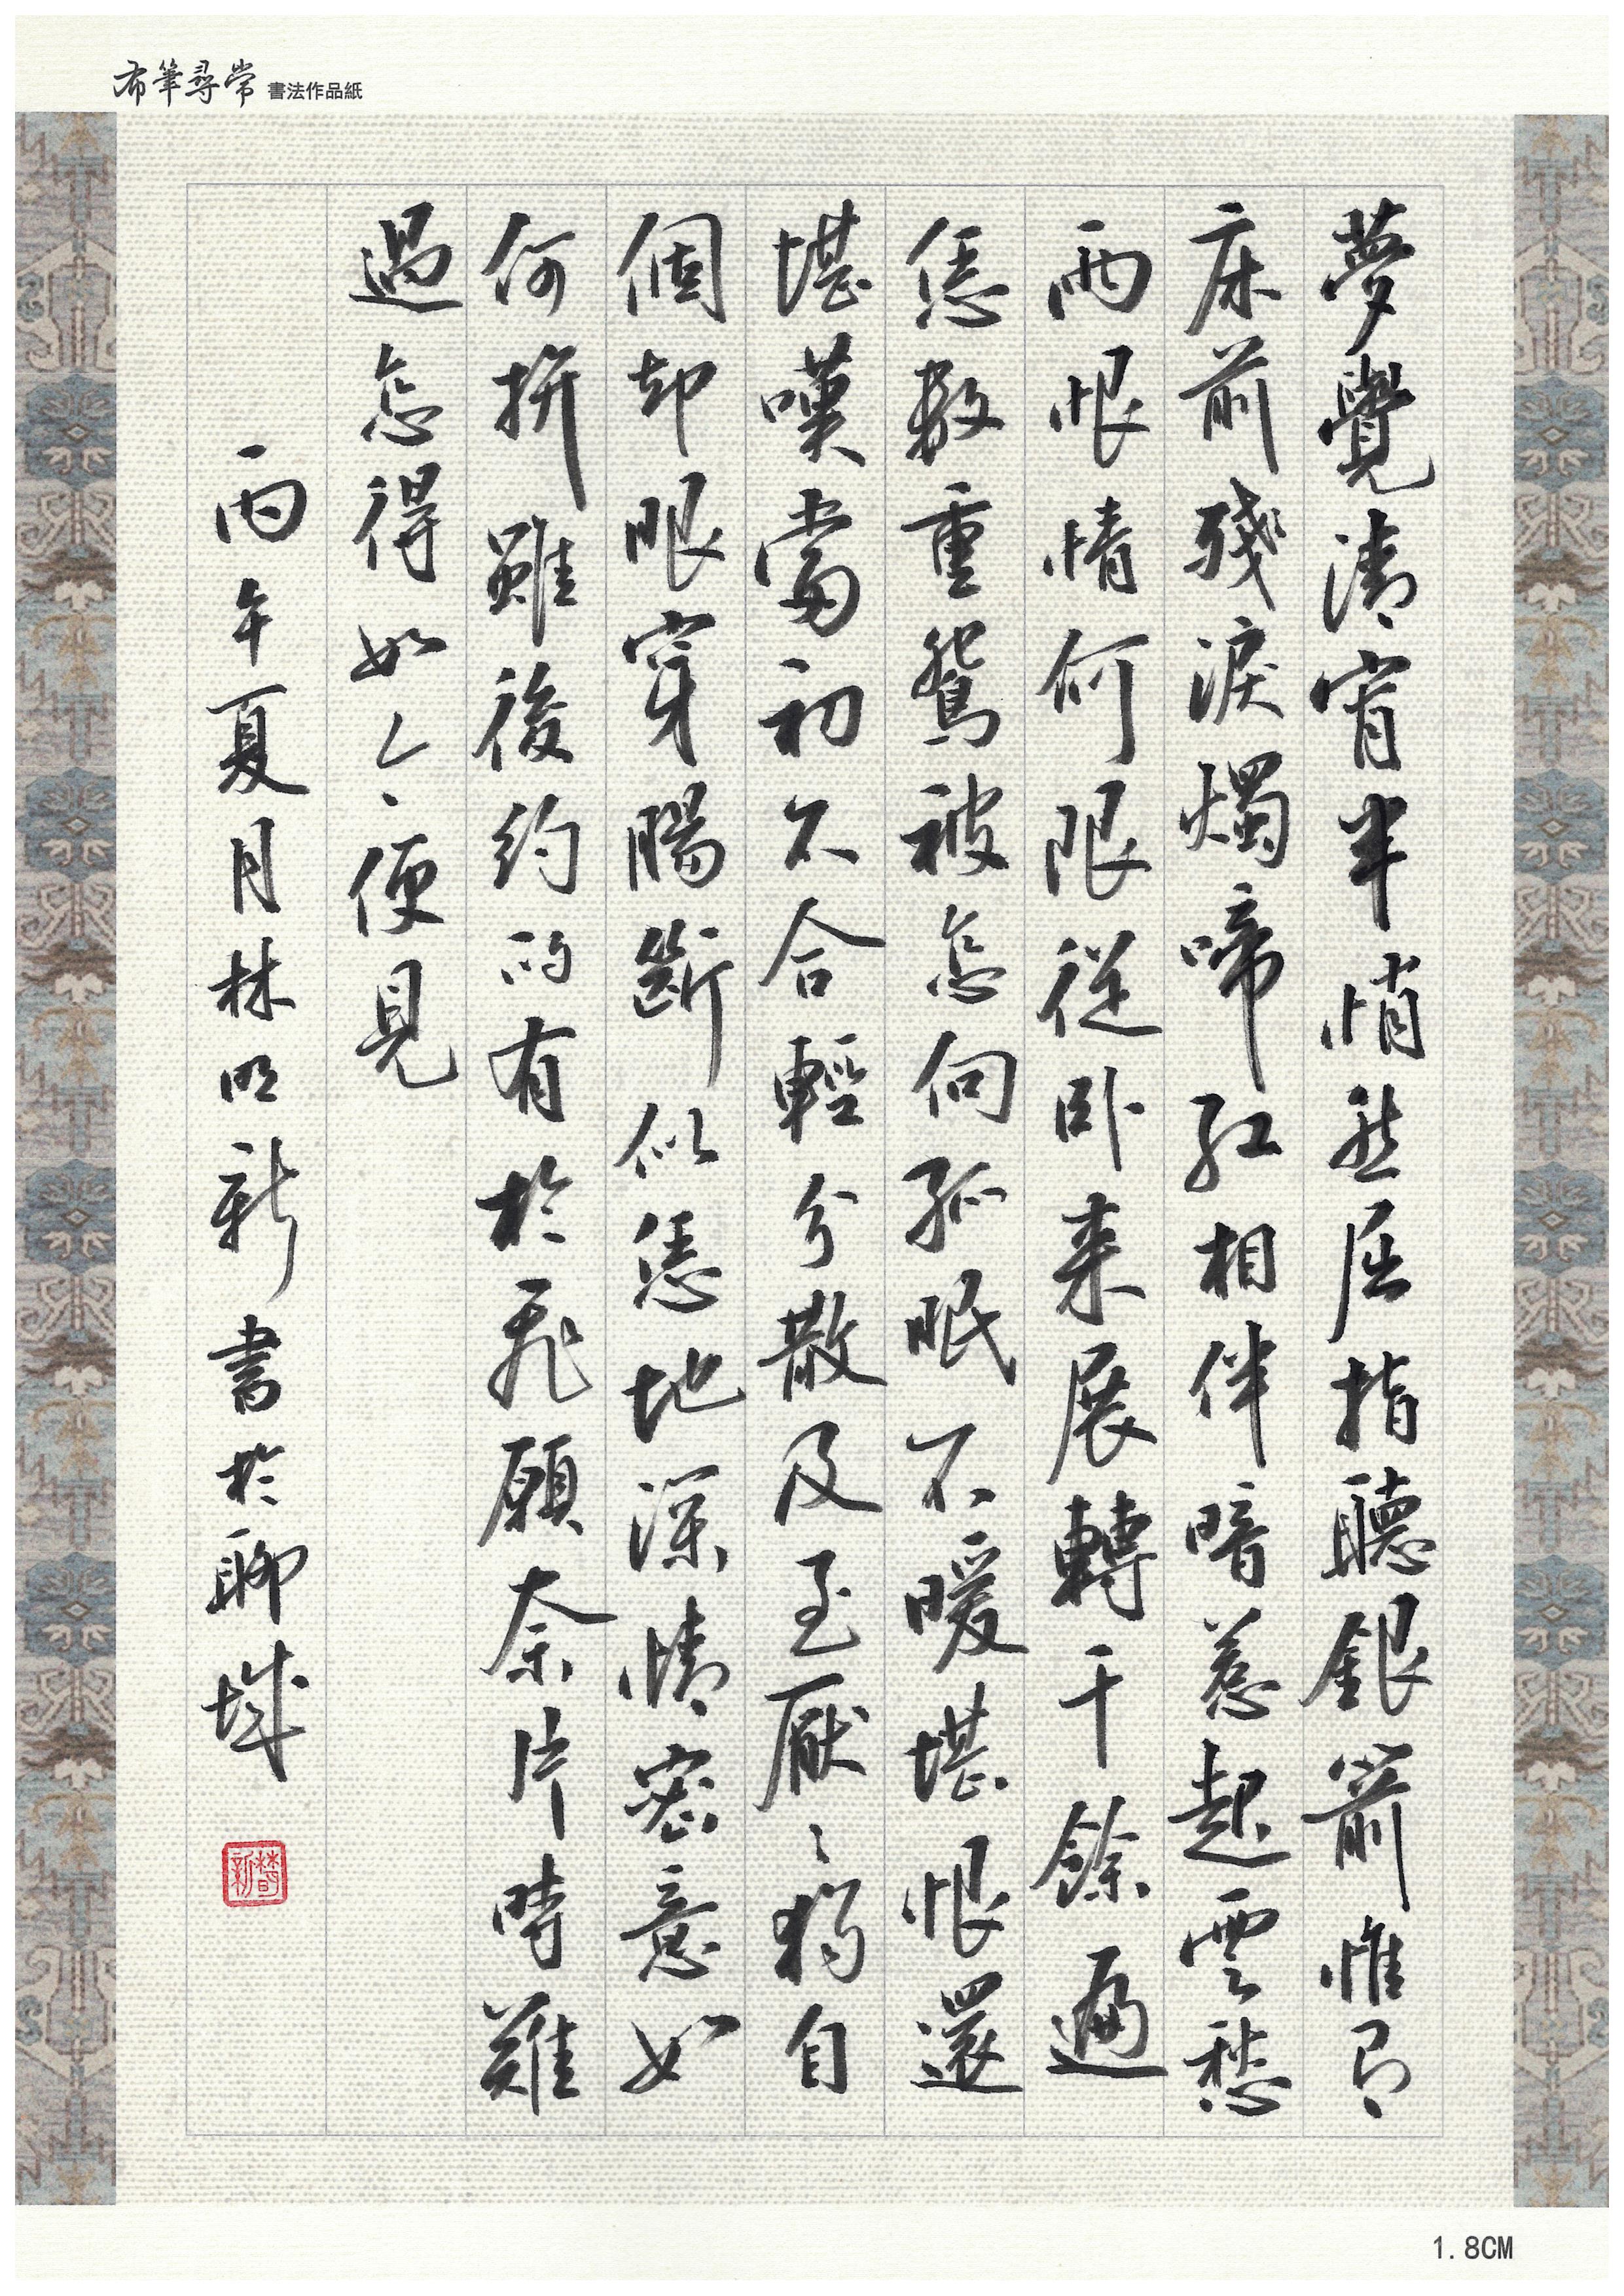 布筆尋常 書法作品紙
夢覺清宵半悄然屈指聽銀箭惟有
床前殘淚燭啼紅相伴暗惹起雲愁
雨恨情何限從臥来展轉千餘遍
恁數重鴛被怎向孤眠不暖堪恨還
堪嘆當初不合輕分散及至厭〻獨自
個却眼穿腸斷似恁地深情密意如
何拼雖後約的有於飛願奈片時難
過怎得如今便見
丙午夏月林明新書於聊城
1.8CM